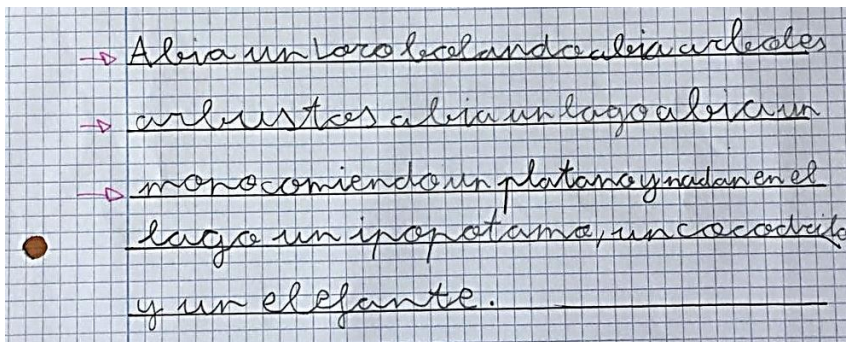 Abia un Loro bolando abia arboles
arbustos abia un lago abia un
mono comiendo un platano y nadan en el
lago un ipopotamo, un cocodrilo
y un elefante.